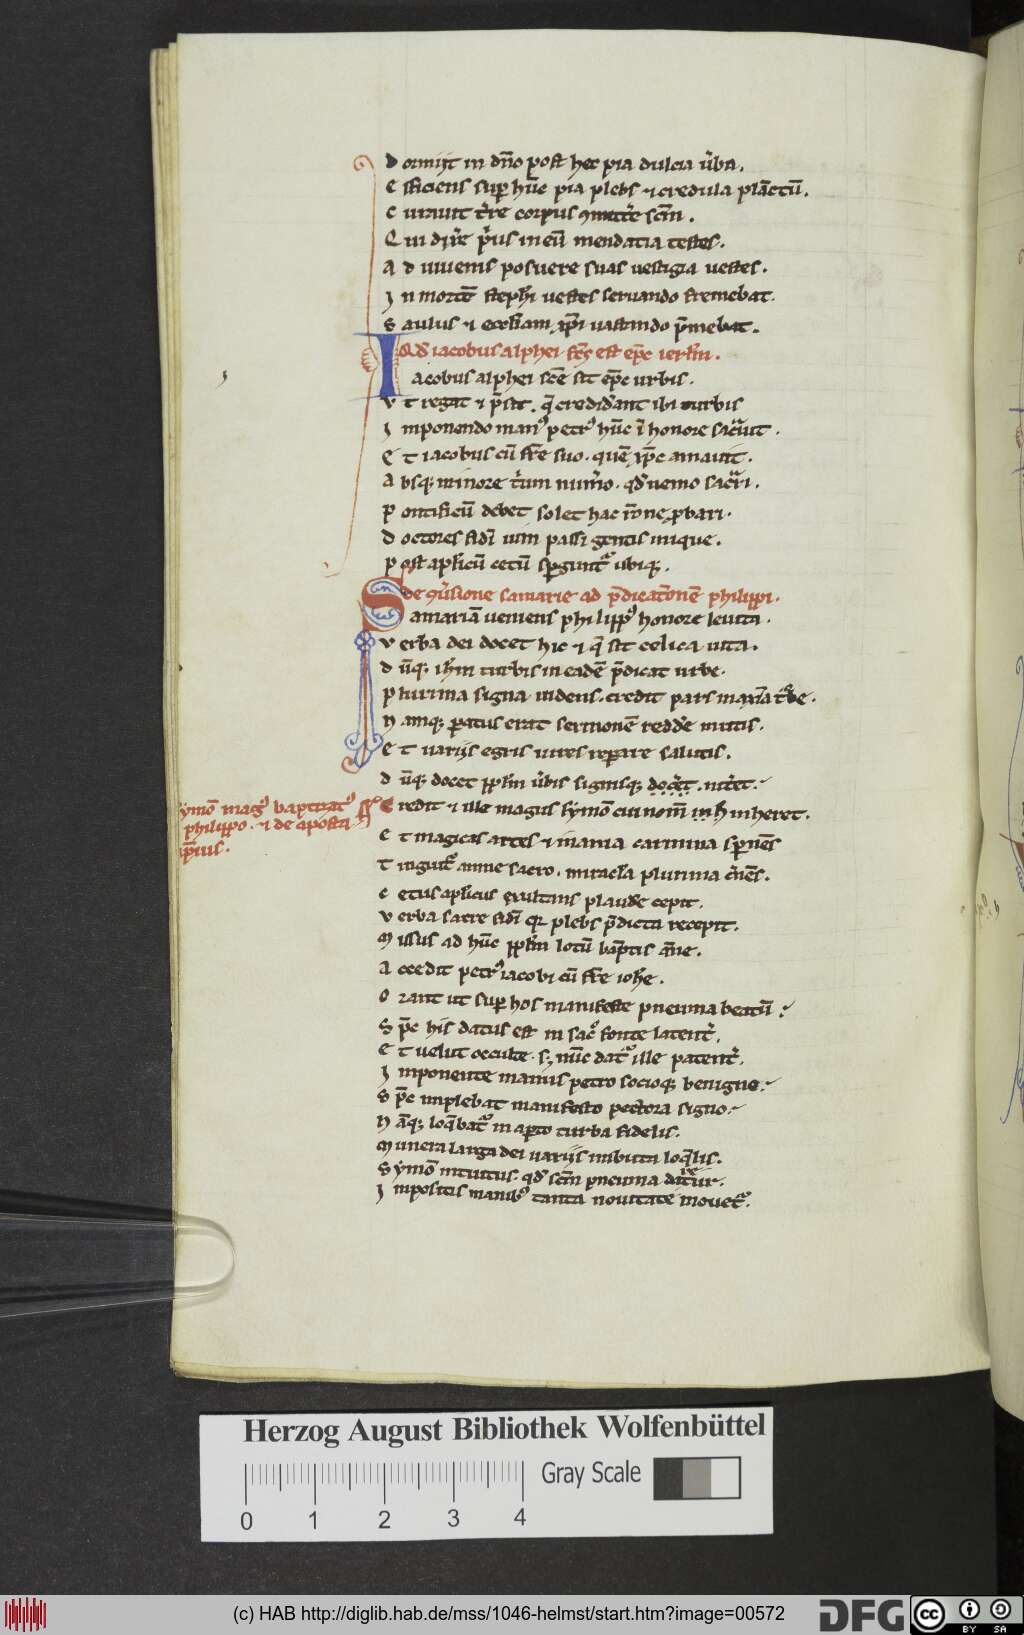 Dormijt in dn̄o post hec pia dulcia ūba.
Efficiens sup hūc pia plebs ⁊ credula planctū.
Curauit t're corpus scm̄.
Qui dix'e p'us in eū mendatia testes.
Ad iuuenis posuere suas uestigia uestes.
In mortē steph'i uestes seruando fremebat.
Saulus ⁊ eccl'iam xp̄i uastando p̄mebat.
Qd' iacobus alphei fc̄s est ep̄c ierl'm.
Iacobus alphei scē sit ep̄c urbis.
Vt regat ⁊ p̄sit. q̄ credid'ant ibi turbis
Imponendo man⁹ petr⁹ hūc ī honore sac'uit.
Et iacobus cū fr̄e suo. quē xp̄c amauit.
Absq; minore t'um num'o. qd' nemo sac'ri.
Pontificū debet solet hac r̄one ꝓbari.
Doctores fidei uim passi gentis inique.
Post apl'icū cetū spgunt' ubiq;.
De ꝯu'sione samarie ad p̄dicatōnē philippi.
Samariā ueniens philipp⁹ honore leuita.
Verba dei docet hic ⁊ q̄ sit celica uita.
Dūq; ih'm turbis in eadē p̄dicat urbe.
Plurima signa uidens. credit pars maxīa t'be.
Namq; patus erat sermonē redd'e mutis.
Et uarijs egris uires repare salutis.
Dūq; docet pp̄l'm ūbis signisq; docet. nitet.
Credit ⁊ ille magus symō cui nom̄ in h inheret.
ymō mag⁹ baptizat'
philippo. ⁊ de aposta
Et magicas artes ⁊ inania carmina sp̄nēs
Tinguit' amne sacro. mirac'la plurima c'nēs.
Cetus apl'icus exultans plaud'e cepit.
Verba sacre fidei qr plebs p̄dicta recepit.
Missus ad hūc pp̄l'm lotū bap̄tis am̄e.
Accedit petr⁹ iacobi cū fr̄e ioh'e.
Orant ut sup hos manifeste pneuma beatū.
Sp̄c his datus est in sac° fonte latent'.
Et uelut occulte. s; nūc dat' ille patent'.
Imponente manus petro socioq; benigne.
Sp̄c implebat manifesto pectora signo.
Nāq; loq̄bat' in apto turba fidelis.
Munera larga dei uarijs imbuta loq̄lis.
Symō intuitus. qd' scm̄ pneuma dat'ur.
Inpositis manib⁹ tanta nouitate mouet'.
Herzog August Bibliothek Wolfenbüttel
Gray Scale
0 1 2 3 4
(c) HAB http://diglib.hab.de/mss/1046-helmst/start.htm?image=00572
DFG
cc BY SA